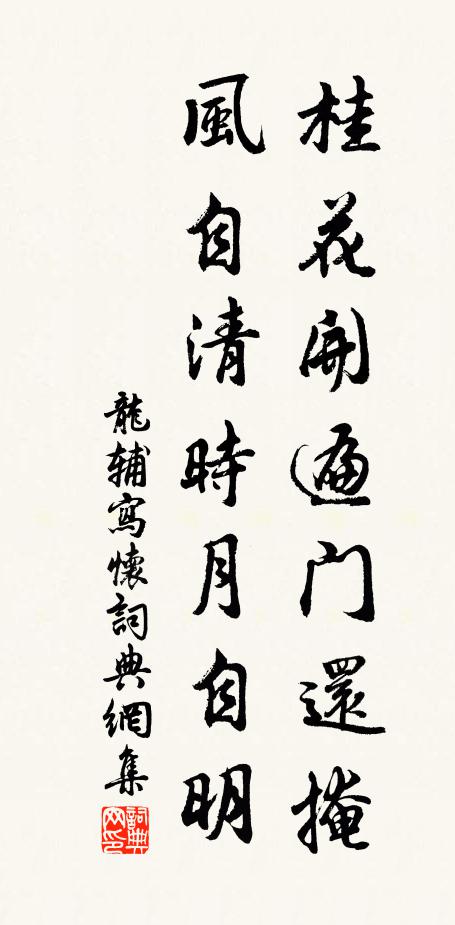 桂花開遍門還掩
風自清時月自明
龍輔寫懷詞典網集
詞典网印